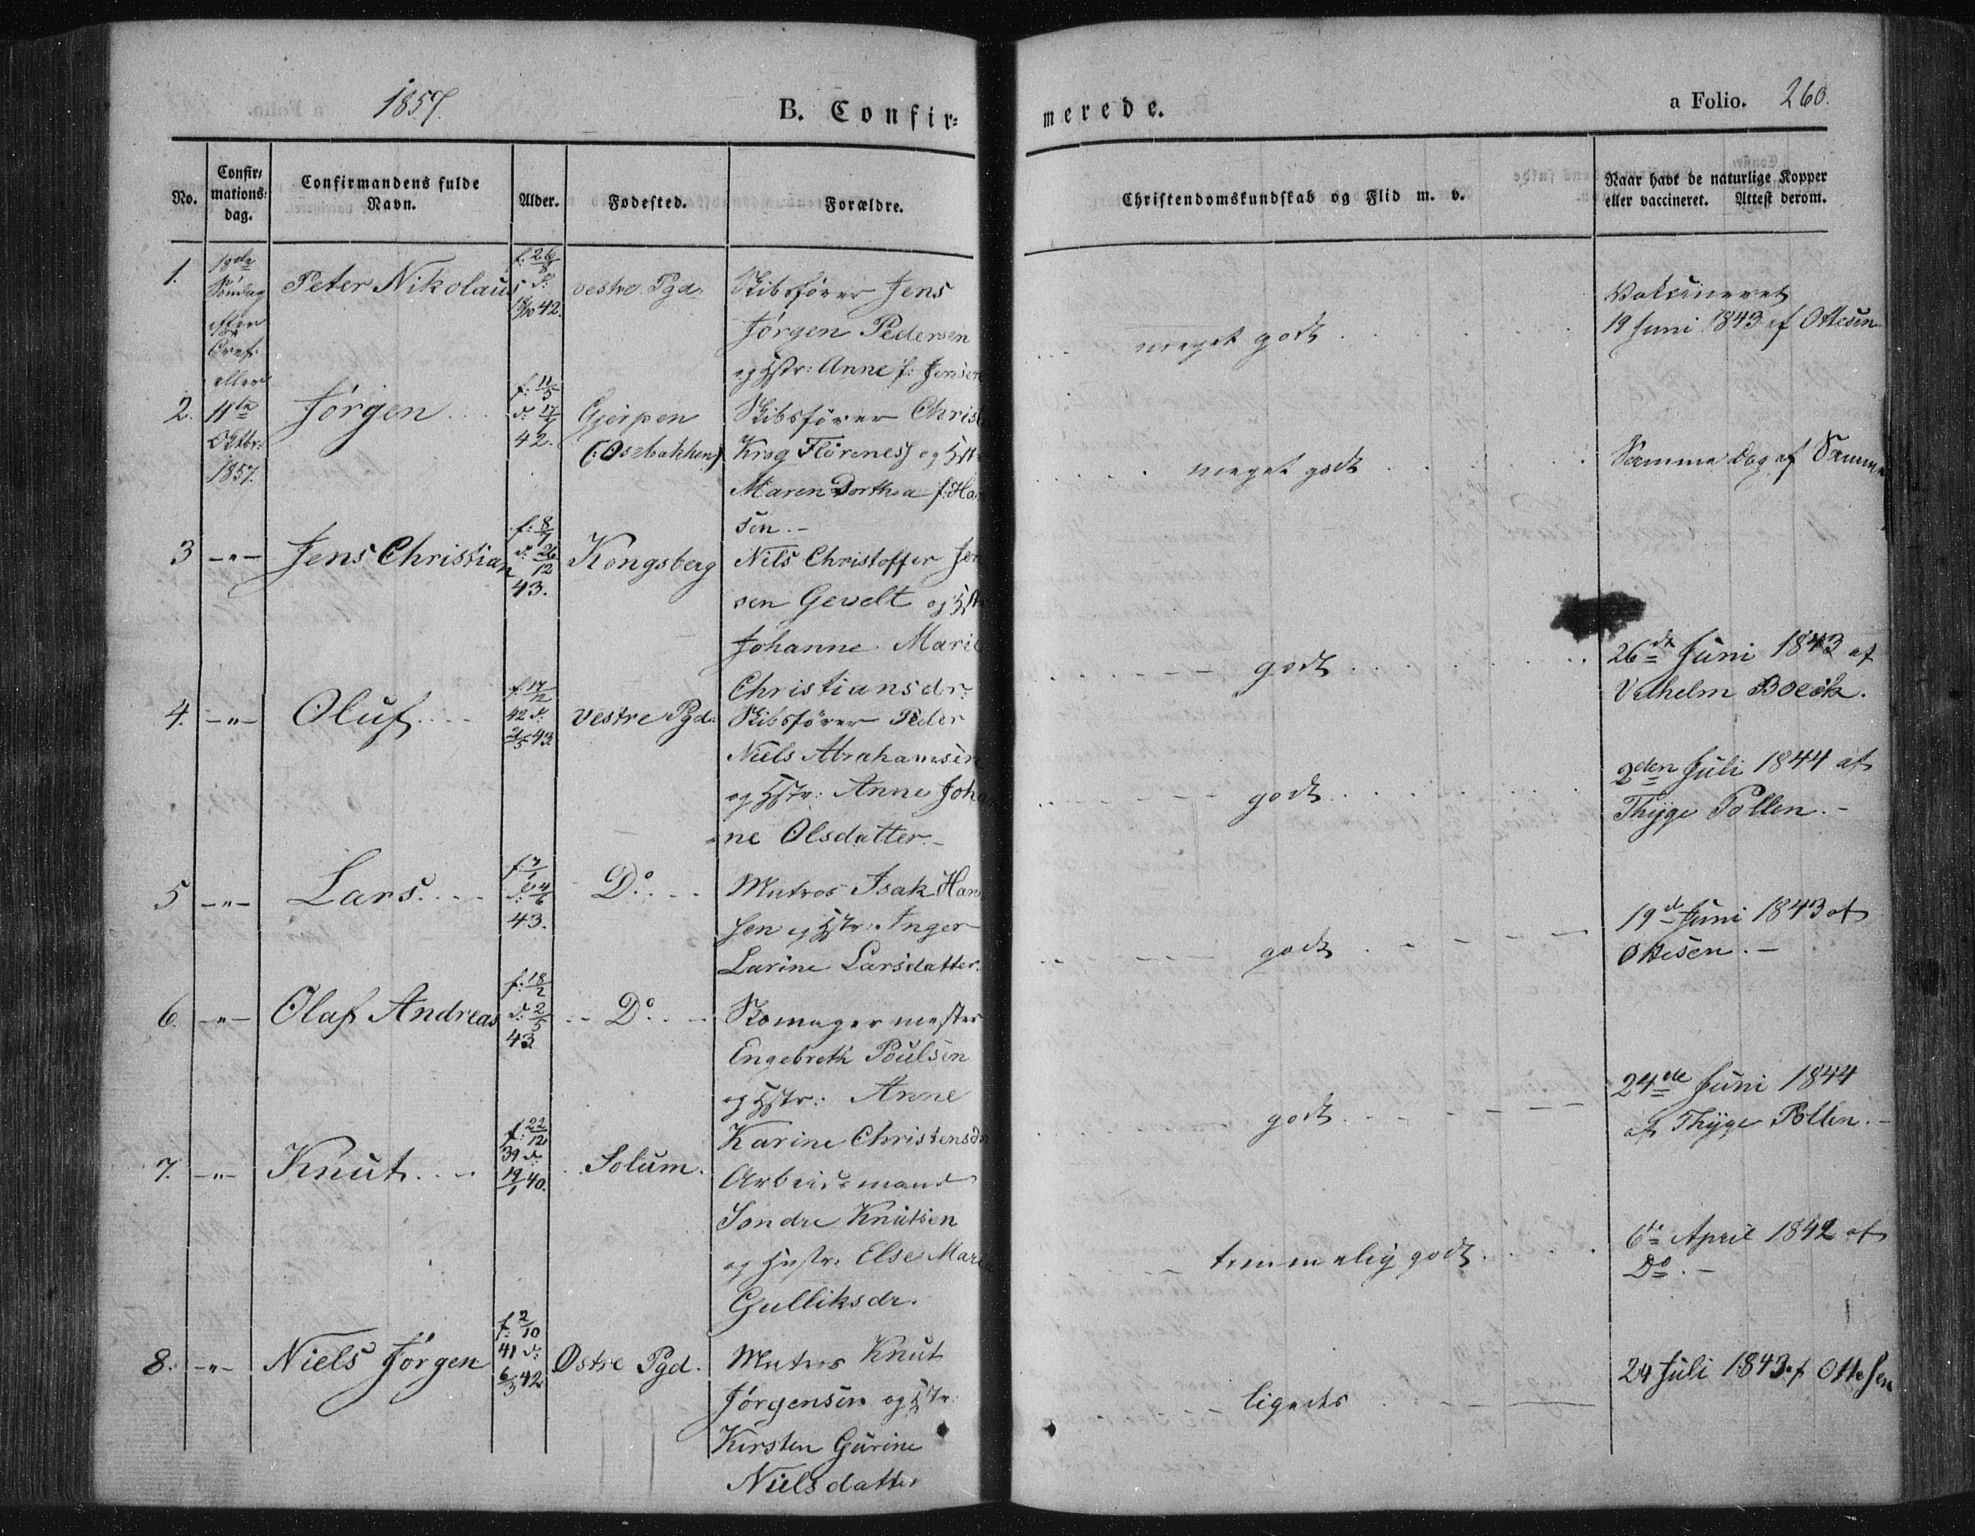 1857.
B. Confirmerede.
a Folio. 260.
No.
Confir-
mations-
dag.
Confirmandens fulde
Navn.
Alder.
Fødested.
Forældre.
Christendomskundskab og Flid m. v.
Naar havt de naturlige Kopper
eller vaccineret. Attest derom.
1.
18de
Søndag
efter
Tref.
eller
11te
Oktbr.
1857.
Peter Nikolaus
f. 26/8
d.
18/10 42.
vestre Pgd.
Skibsfører Jens
Jørgen Pedersen
og Hstr: Anne f: Jensen
meget godt
Vaksineret
19 Juni 1843 af Ottesen
2.
Jørgen
f. 11/5
d. 17/7
42.
Gjerpen
(: Osebakken)
Skibsfører Christ
Krog Florenes og Hstr
Maren Dorthea f: Han
sen.-
meget godt
Samme Dag af Samme
3 -"-
Jens Christian
f. 8/7
d. 26/12
43.
Kongsberg
Nils Christoffer Jen
sen Gevelt og Hstr
Johanne Marie
Christiansdr.
godt
26de Juni 1843 af
Vilhelm Boeck.
4. -"-
Oluf
f. 17/12
42 d.
7/5 43
vestre Pgd.
Skibsfører Peder
Niels Abrahamsen
og Hstr: Anne Johan
=ne Olsdatter.-
godt
2den Juli 1844 af
Thyge Pollen.-
5 -"-
Lars
f. 7/1
d. 4/6
43.
Do.
Matros Isak Han
sen og Hstr: Inger
Larine Larsdatter.
godt
19de Juni 1843 af
Ottesen.-
6. -"-
Olaf Andreas
f. 18/2
d. 2/5
43
Do.
Skomagermester
Engebreth Poulsen
og Hstr: Anne
Karine Christensdr
godt
24de Juni 1844
af Thyge Pollen.-
7. -"-
Knut
f. 22/12
39 d.
19/1 40.
Solum.
Arbeidsmand
Søndre Knutsen
og Hustr: Else Marie
Gulliksdr.
temmelig godt
6te April 1842 af
Do.-
8. -"-
Niels Jørgen
f. 2/10
41 d.
6/3 42
Østre Pgd.
Matros Knut
Jørgensen og Hstr:
Kirsten Gurine
Nielsdatter
ligeds
24 Juli 1843 af Ottesen